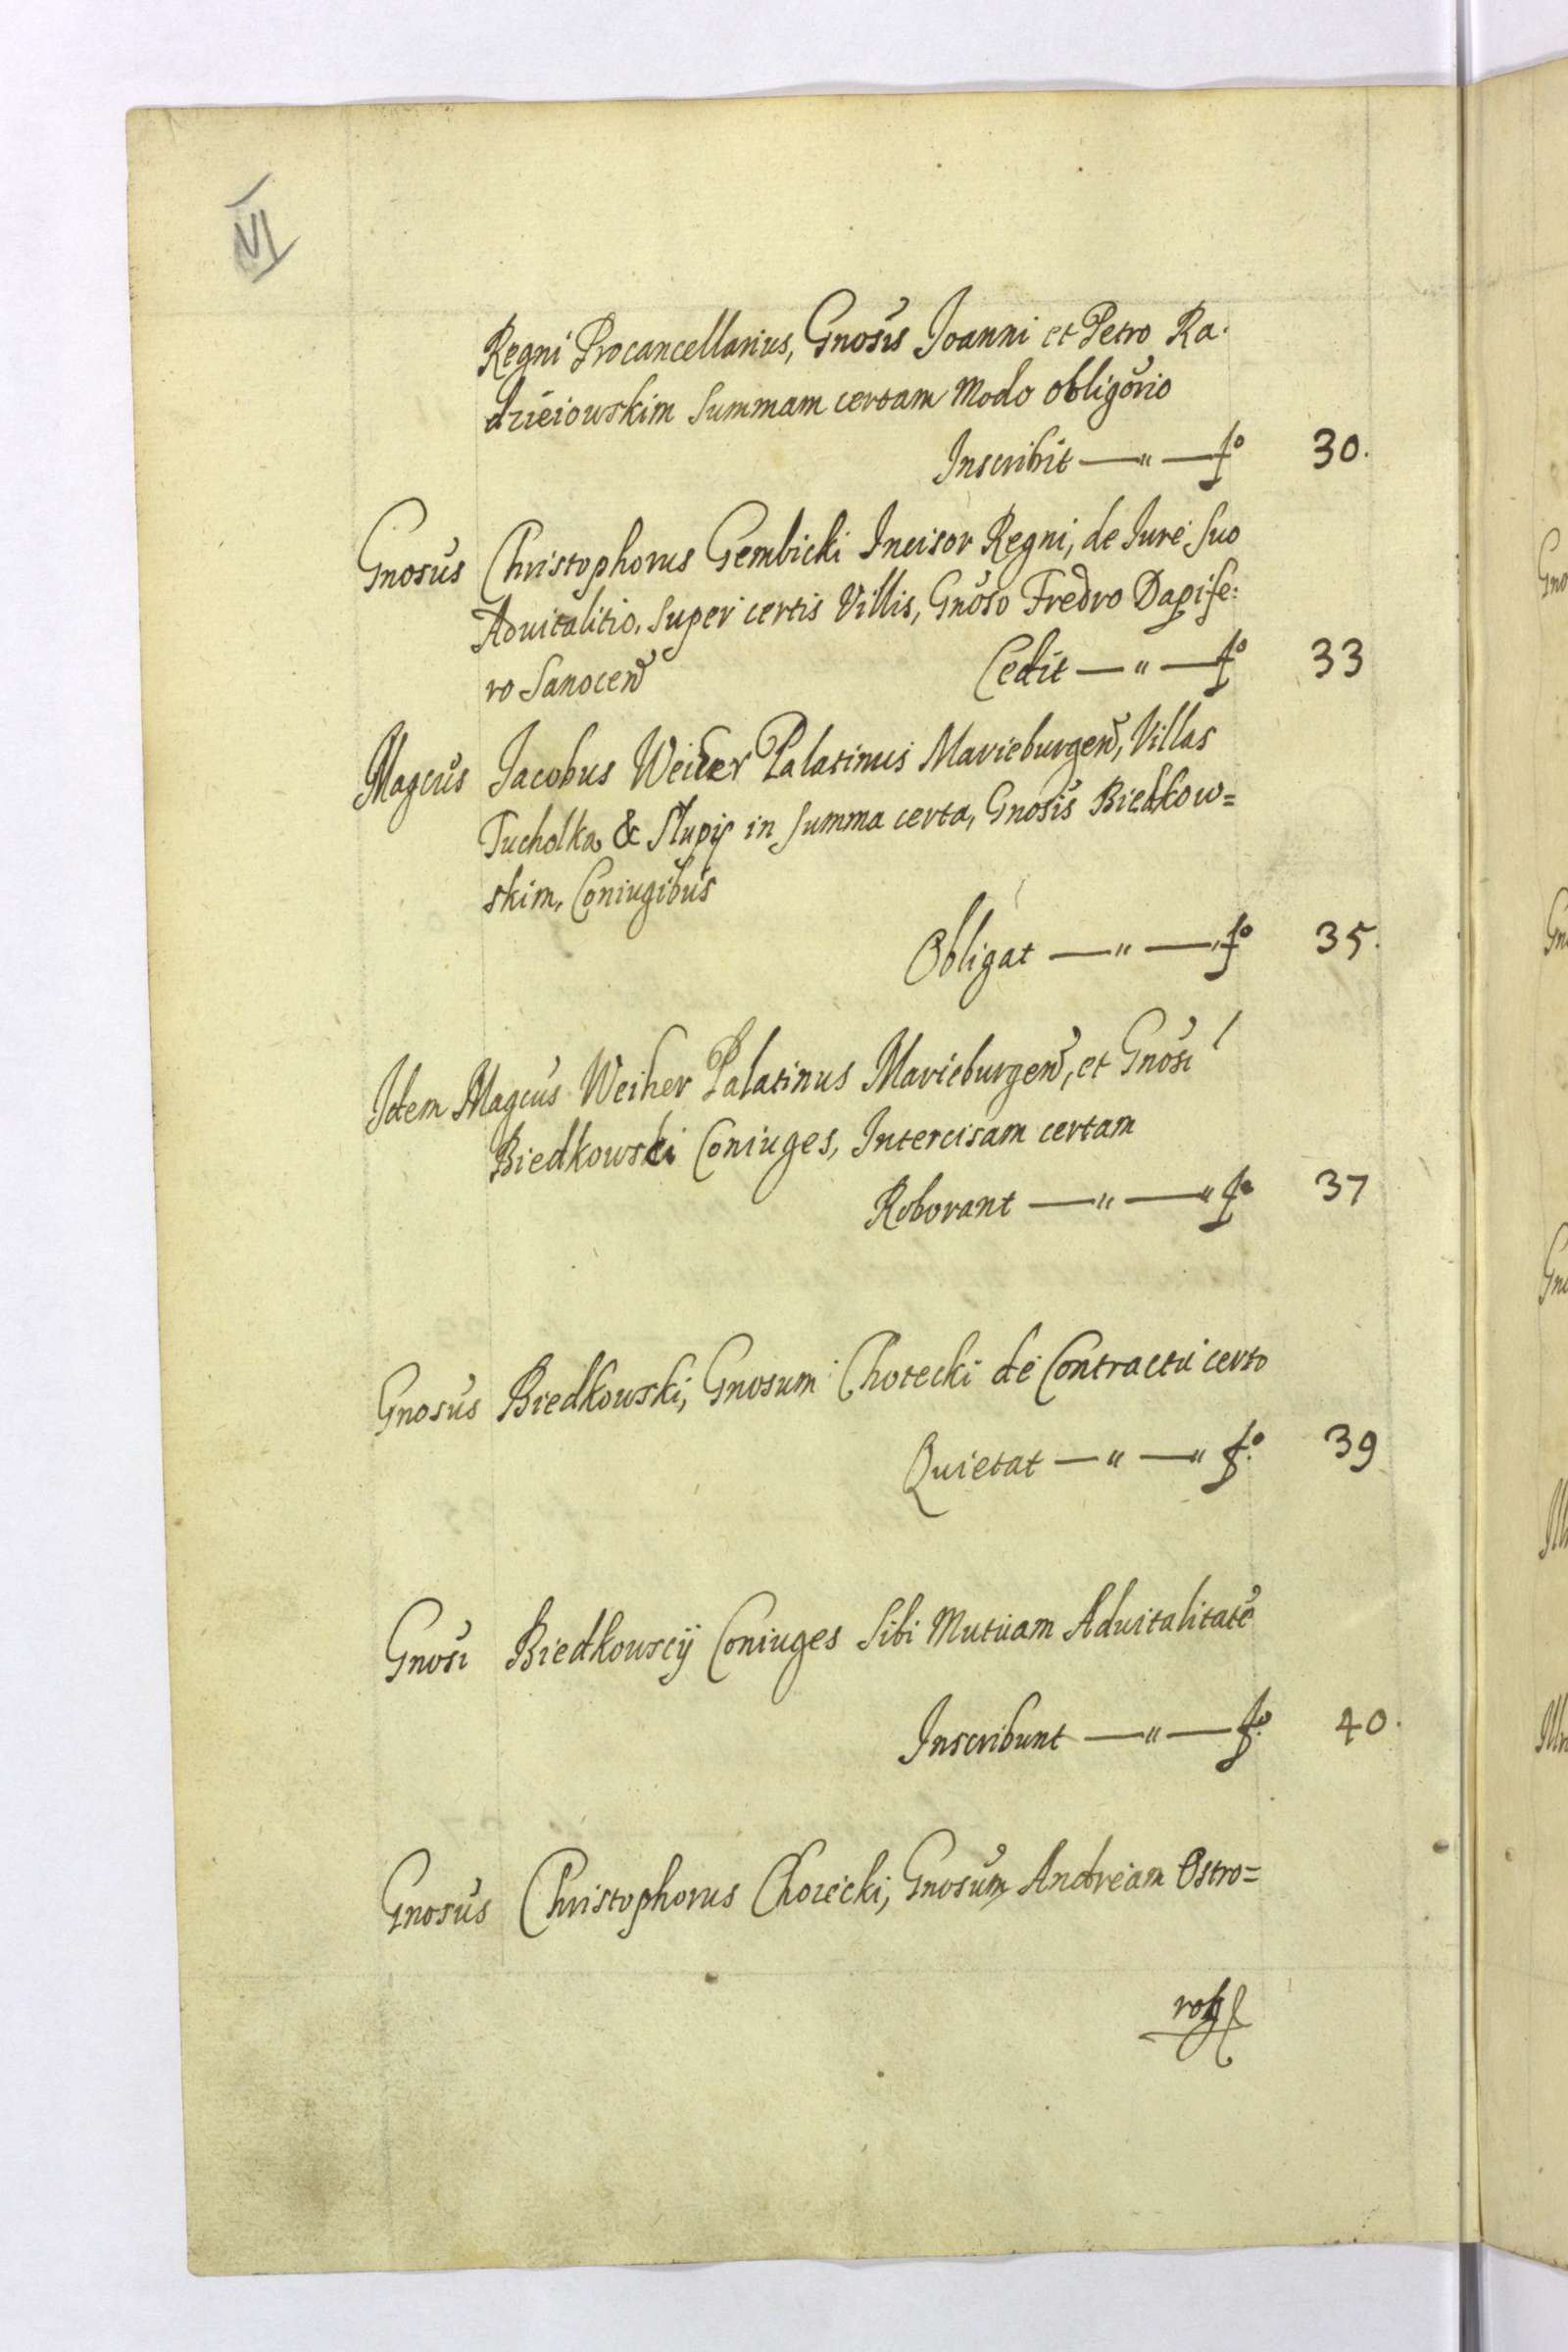 VI
Regni Procancellarius, Gnosis Joanni et Petro Ra-
dzieiowskim Summam certam Modo Obligorio
Inscribit —"— fo 30.
Gnosus Christophorus Gembicki Incisor Regni, de Jure Suo
Advitalitio, Super certis Villis, Gnoso Fredro Dapife:
ro Sanocen Cedit —"— fo 33
Magcus Jacobus Weiher Palatinus Marieburgen, Villas
Tucholka & Slupij in Summa certa, Gnosis Biedkow=
skim, Coniugibus
Obligat —"— fo 35.
Idem Magcus Weiher Palatinus Marieburgen, et Gnosi
Biedkowski Coniuges, Intercisam certam
Roborant —"—" fo 37
Gnosus Biedkowski, Gnosum Chotecki de Contractu certo
Quietat —"—" fo 39
Gnosi Biedkowscij Coniuges Sibi Mutuam Advitalitate
Inscribunt —"— fo 40.
Gnosus Christophorus Chotecki, Gnosum Andream Ostro=